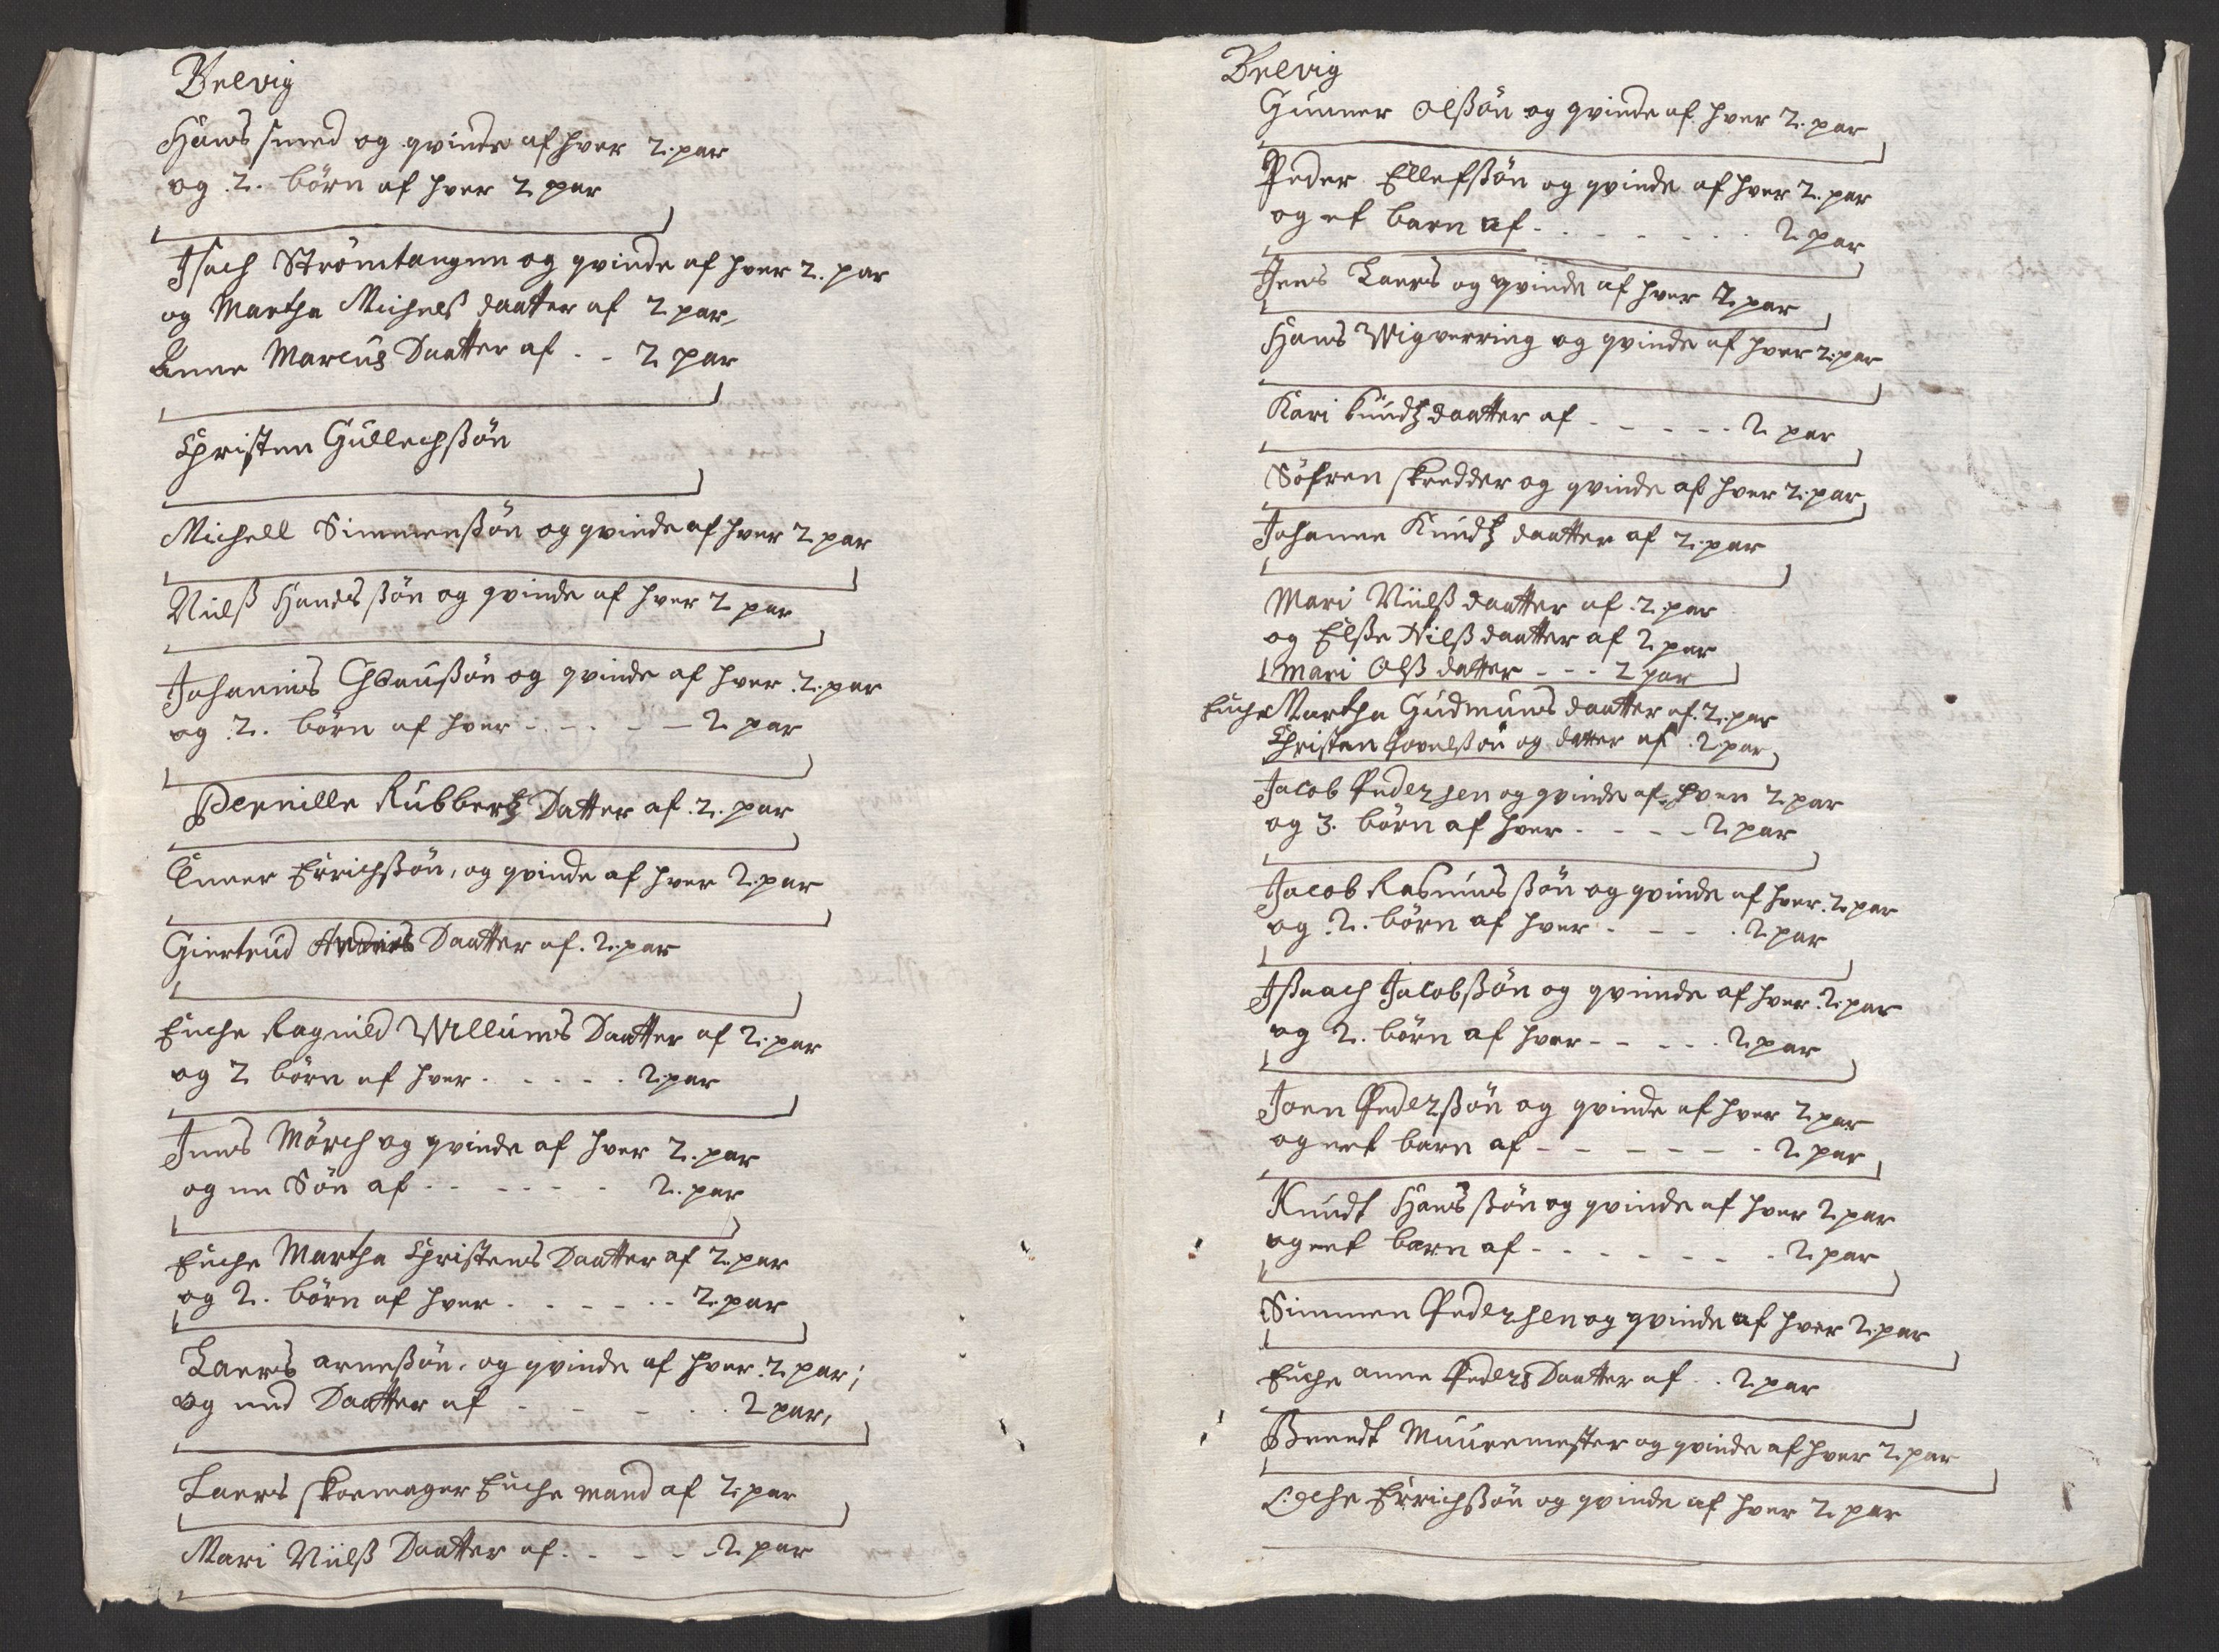 Belvig
Hans smed og qvinde af hver 2. par
og 2. börn af hver 2 par
Isach Strömtangen og qvinde af hver 2. par
og Martha Michelß daatter af 2 par
Anne Marcus Daatter af - - 2 par
Christen Gullechßön
Michell Simmenßön og qvinde af hver 2 par
Nielß Handsßön og qvinde af hver 2 par
Johannis Clausßön og qvinde af hver 2. par
og 2. börn af hver - - - - 2 par
Pernille Rubbertz Datter af 2. par
Anner Errichßön, og qvinde af hver 2. par
Giertrud Daatter af. 2. par
Enche Ragnild Willums Daatter af 2. par
og 2 börn af hver - - - - - 2. par
Jens Mörch og qvinde af hver 2. par
og en Sön af - - - - - - 2. par
Enche Martha Christens Daatter af 2. par
og 2. börn af hver - - - - - - 2. par
Laers arneßön, og qvinde af hver 2. par;
og end Daatter af - - - - - 2 par,
Laers skoemager Enche mand af 2. par
Mari Niilß Daatter af - - - - 2. par
Belvig
Gunner Olßön og qvinde af hver 2. par
Peder Ellefßön og qvinde af hver 2. par
og et barn af - - - - - - - 2 par
Jens Laers og qvinde af hver 2. par
Hans Wigverring og qvinde af hver 2. par
Kari kundtz daatter af - - - - - 2 par
Söfren skredder og qvinde af hver 2. par
Johanne Kundtz daatter af 2. par
Mari Niilß daatter af 2. par
og Elße Nilß daatter af 2 par
Mari Olß datter - - - 2 par
Enche Martha Gudmunds daatter af. 2. par
Christen og datter af 2. par
Jacob Pedersen og qvinde af hver 2 par
og 3. börn af hver - - - - 2 par
Jacob Rasmusßön og qvinde af hver. 2. par
og 2. börn af hver - - - - 2 par
Ißaach Jacobßön og qvinde af hver 2. par
og 2. börn af hver - - - - - 2. par
Joen Pedersßön og qvinde af hver 2. par
og eet barn af - - - - - - 2. par
Knudt Hansßön og qvinde af hver 2. par
og eet barn af - - - - - - - - 2. par
Simmen Pedersen og qvinde af hver 2. par
Enche anne Peders Daatter af - - 2. par
Berendt Muuremester og qvinde af hver 2. par
Errichßön og qvinde af hver 2. par